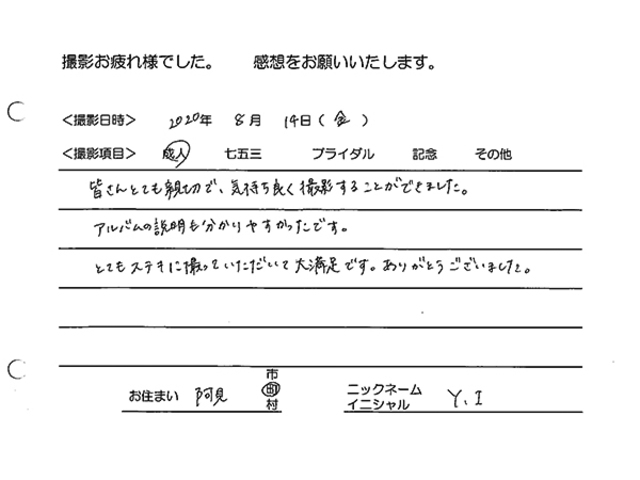 撮影お疲れ様でした。　感想をお願いいたします。
<撮影日時>　2020年　8月　14日（金）
<撮影項目>　成人　七五三　ブライダル　記念　その他
皆さんとても親切で、気持ち良く撮影することができました。
アルバムの説明も分かりやすかったです。
とてもステキに撮っていただいて大満足です。ありがとうございました。
お住まい　阿見　市町村
ニックネーム
イニシャル　Y.I